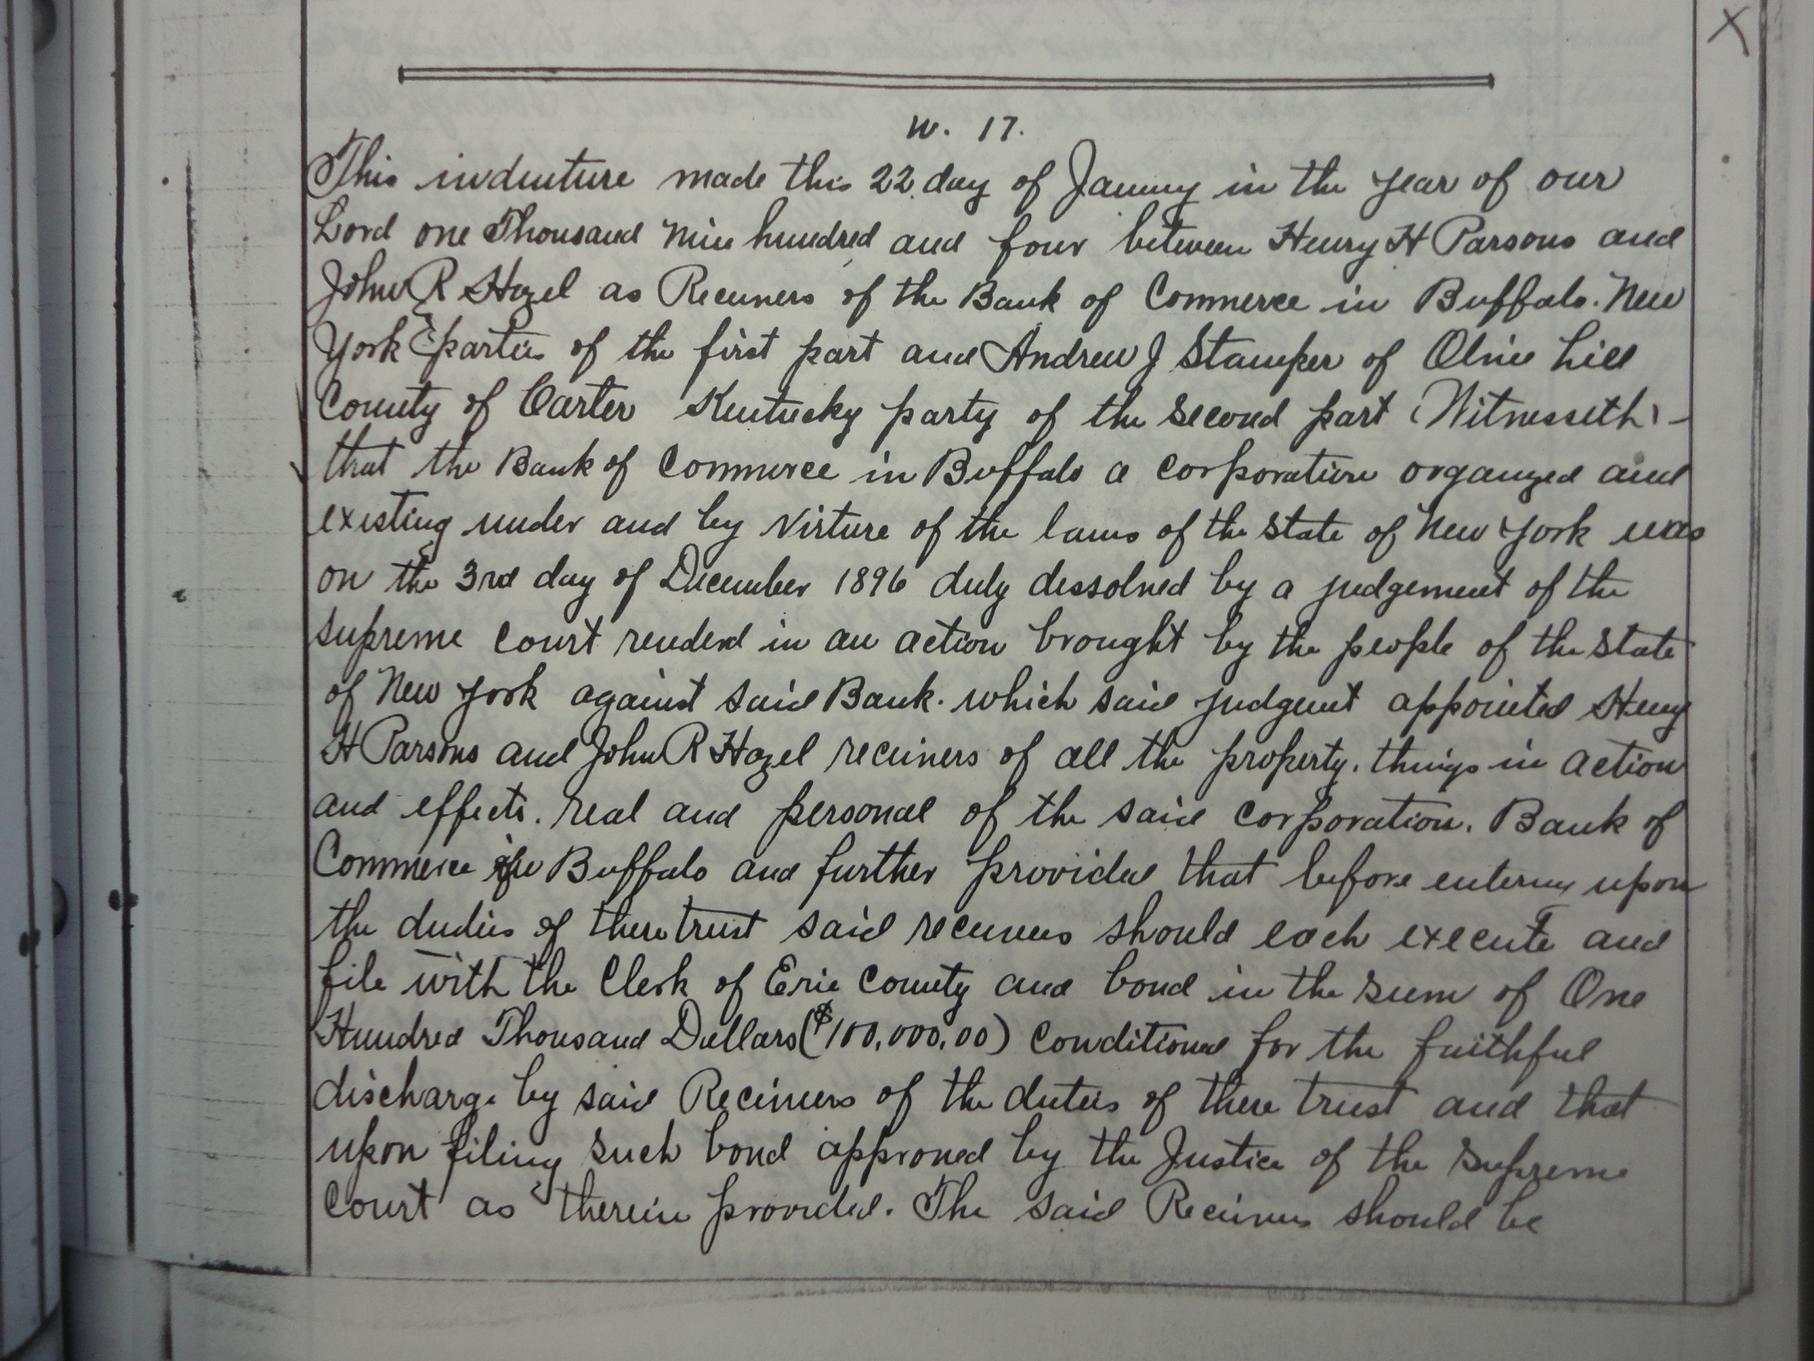 W. 17.
This indenture made this 22 day of January in the year of our
Lord one Thousand Nine hundred and four between Henry H Parsons and
John R Hazel as Receivers of the Bank of Commerce in Buffalo. New
York parties of the first part and Andrew J Stamper of Olive hill
County of Carter Kentucky party of the second part (Witnesseth) -
that the Bank of Commerce in Buffalo a corporation organized and
existing under and by virture of the laws of the state of New York was
on the 3rd day of December 1896 duly dessolved by a judgement of the
supreme court renderd in an action brought by the people of the state
of New York against said Bank. which said judgment appointed Henry
H Parsons and John R Hazel receivers of all the property. things in action
and effects. real and personal of the said corporation. Bank of
Commerce in Buffalo and further provided that before entering upon
the duties of there trust said receivers should each execute and
file with the Clerk of Erie County and bond in the sum of One
Hundred Thousand Dollars ($100,000.00) Conditioned for the faithful
discharge by said Receivers of the duties of there trust and that
upon filing such bond approved by the Justice of the Supreme
Court as therein provided. The said Receivers should be
X